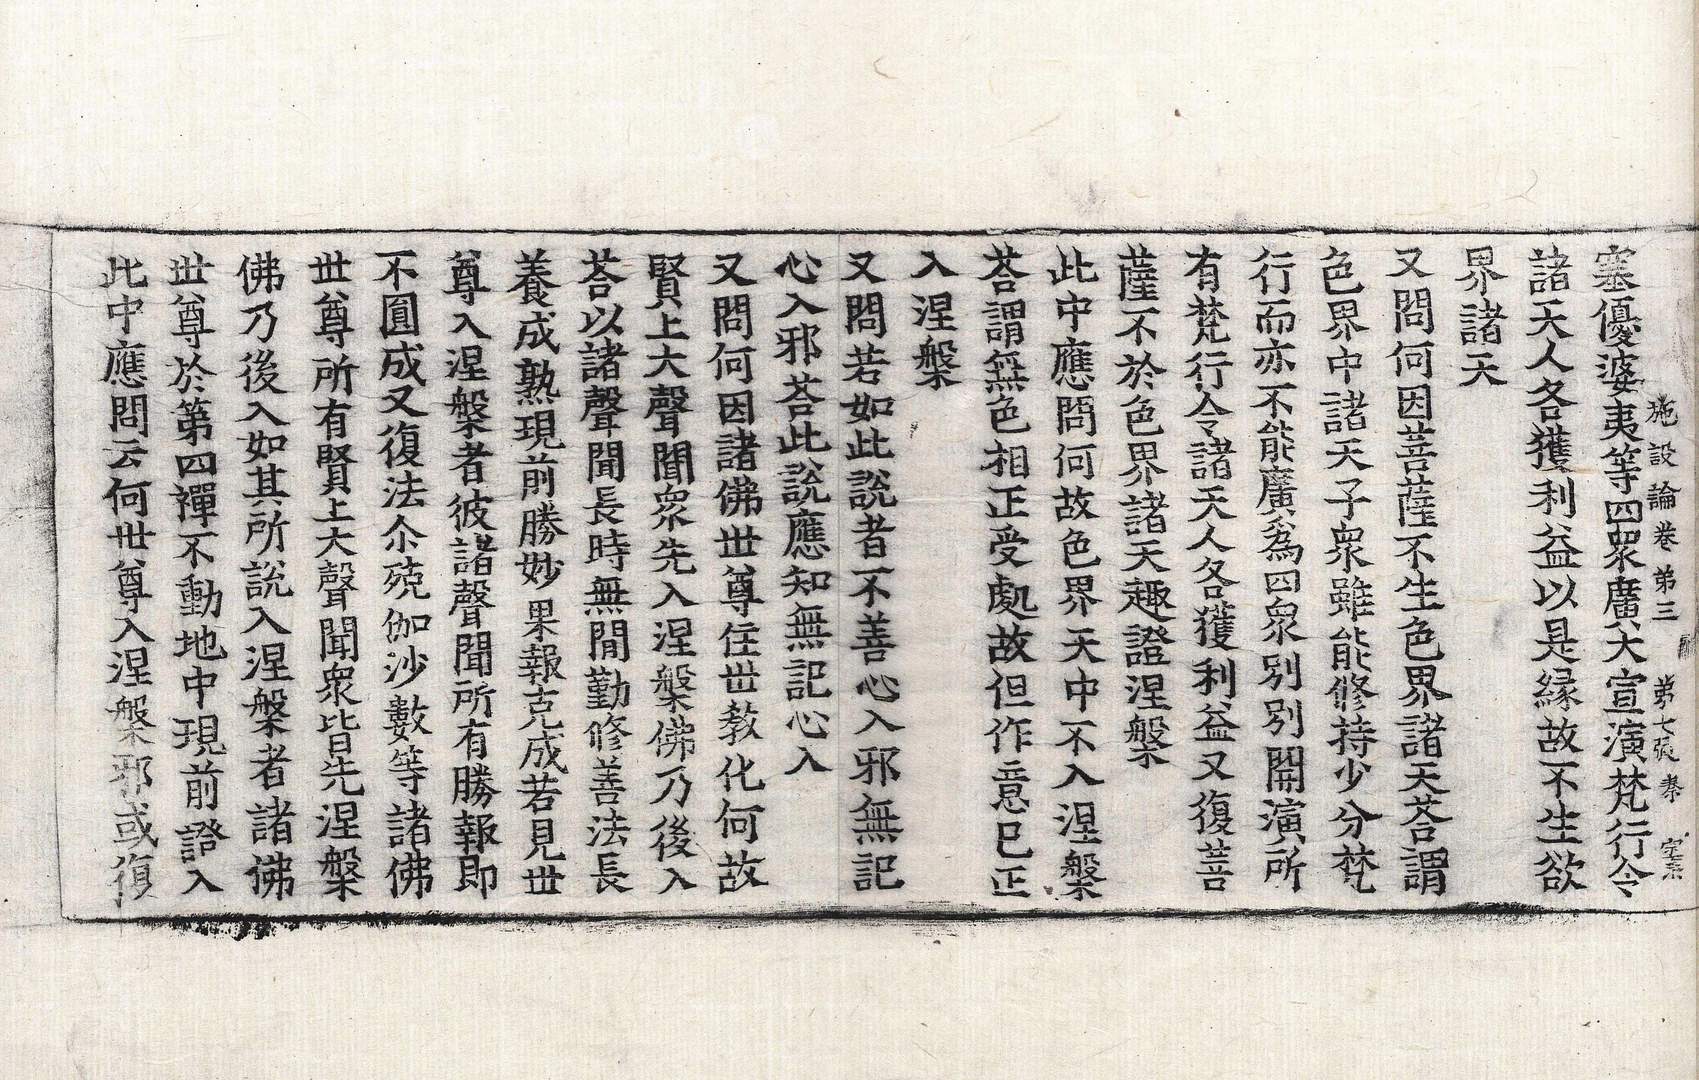 施設論卷第三　第七張　秦　宝
塞優婆夷等四衆廣大宣演梵行令
諸天人各獲利益以是緣故不生欲
界諸天
又問何因菩薩不生色界諸天荅謂
色界中諸天子衆雖能修持少分梵
行而亦不能廣爲四衆別別開演所
有梵行令諸天人各獲利益又復菩
薩不於色界諸天趣證涅槃
此中應問何故色界天中不入涅槃
荅謂無色相正受處故但作意已正
入涅槃
又問若如此說者不善心入邪無記
心入邪荅此說應知無記心入
又問何因諸佛世尊住世教化何故
賢上大聲聞衆先入涅槃佛乃後入
荅以諸聲聞長時無間勤修善法長
養成熟現前勝妙果報克成若見世
尊入涅槃者彼諸聲聞所有勝報即
不圓成又復法尒殑伽沙數等諸佛
世尊所有賢上大聲聞衆皆先涅槃
佛乃後入如其所說入涅槃者諸佛
世尊於第四禪不動地中現前證入
此中應問云何世尊入涅槃邪或復